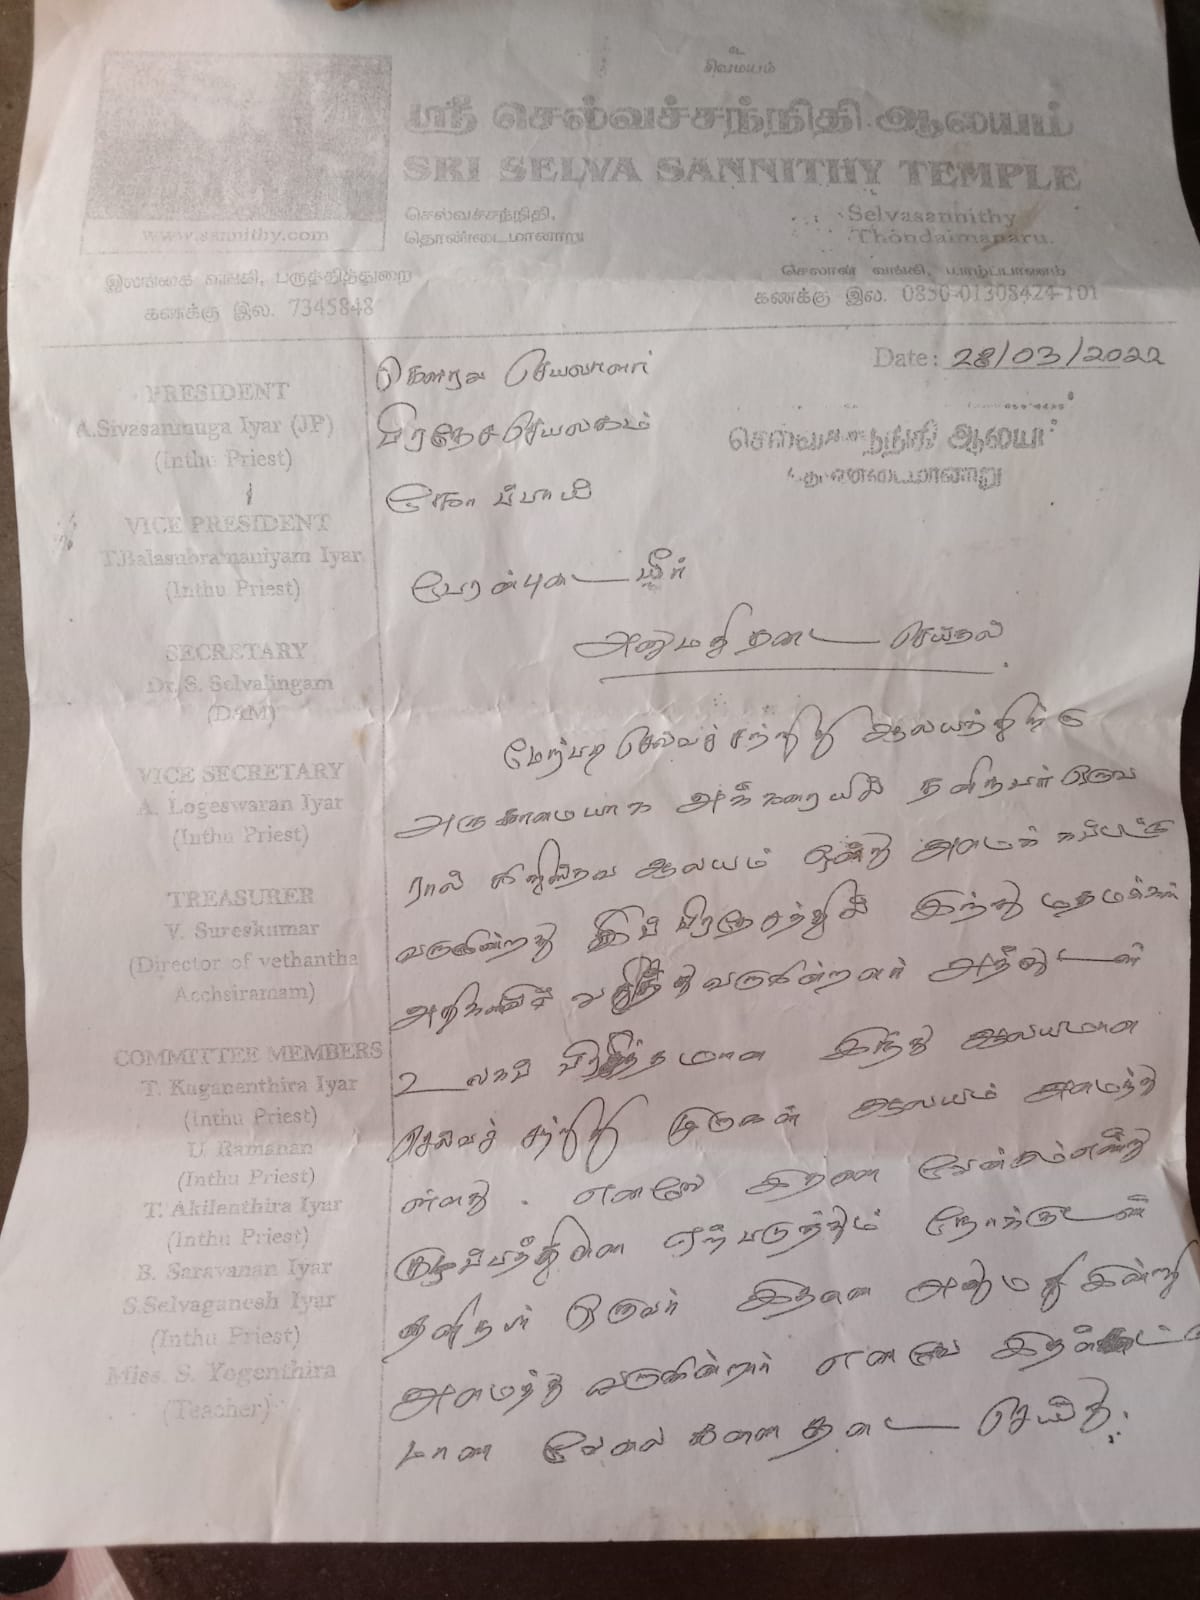 உ
சிவமயம்
ஸ்ரீ செல்வச்சந்நிதி ஆலயம்
SRI SELVA SANNITHY TEMPLE
www.sannithy.com
செல்வச்சந்நிதி,
தொண்டைமானாறு
Selvasannithy
Thondaimanaru.
இலங்கை வங்கி, பருத்தித்துறை
கணக்கு இல. 7345848
செலான் வங்கி, யாழ்ப்பாணம்
கணக்கு இல. 0850-01308424-101
Date: 28/03/2022
PRESIDENT
A.Sivasanmuga Iyar (JP)
(Inthu Priest)
VICE PRESIDENT
T.Balasubramaniyam Iyar
(Inthu Priest)
SECRETARY
Dr. S. Selvalingam
(DAM)
VICE SECRETARY
A. Logeswaran Iyar
(Inthu Priest)
TREASURER
V. Sureskumar
(Director of vethantha
Acchsiramam)
COMMITTEE MEMBERS
T. Kuganenthira Iyar
(Inthu Priest)
U. Ramanan
(Inthu Priest)
T. Akilenthira Iyar
(Inthu Priest)
B. Saravanan Iyar
S.Selvaganesh Iyar
(Inthu Priest)
Miss. S. Yogenthira
(Teacher)
கௌரவ செயலாளர்
பிரதேச செயலகம்
கோப்பாய்
செல்வச்சந்நிதி ஆலயம்
தொண்டைமானாறு
பேரன்புடையீர்
அனுமதி தடை செய்தல்.
மேற்படி செல்வச் சந்நிதி ஆலயத்திற்கு
அருகாமையாக அக்கரையில் தனிநபர் ஒருவ
ரால் கிறிஸ்தவ ஆலயம் ஒன்று அமைக்கப்பட்டு
வருகின்றது இப் பிரதேசத்தில் இந்து மதமக்கள்
அதிகளவில் வசித்து வருகின்றனர் அத்துடன்
உலகப் பிரசித்தமான இந்து ஆலயமான
செல்வச் சந்நிதி முருகன் ஆலயம் அமைந்து
ள்ளது. எனவே இதனை வேண்டும்என்று
குழப்பத்தினை ஏற்படுத்தும் நோக்குடன்
தனிநபர் ஒருவர் இதனை அனுமதிஇன்றி
அமைத்து வருகின்றார் எனவே
மான வேலைகளை தடை செய்து.